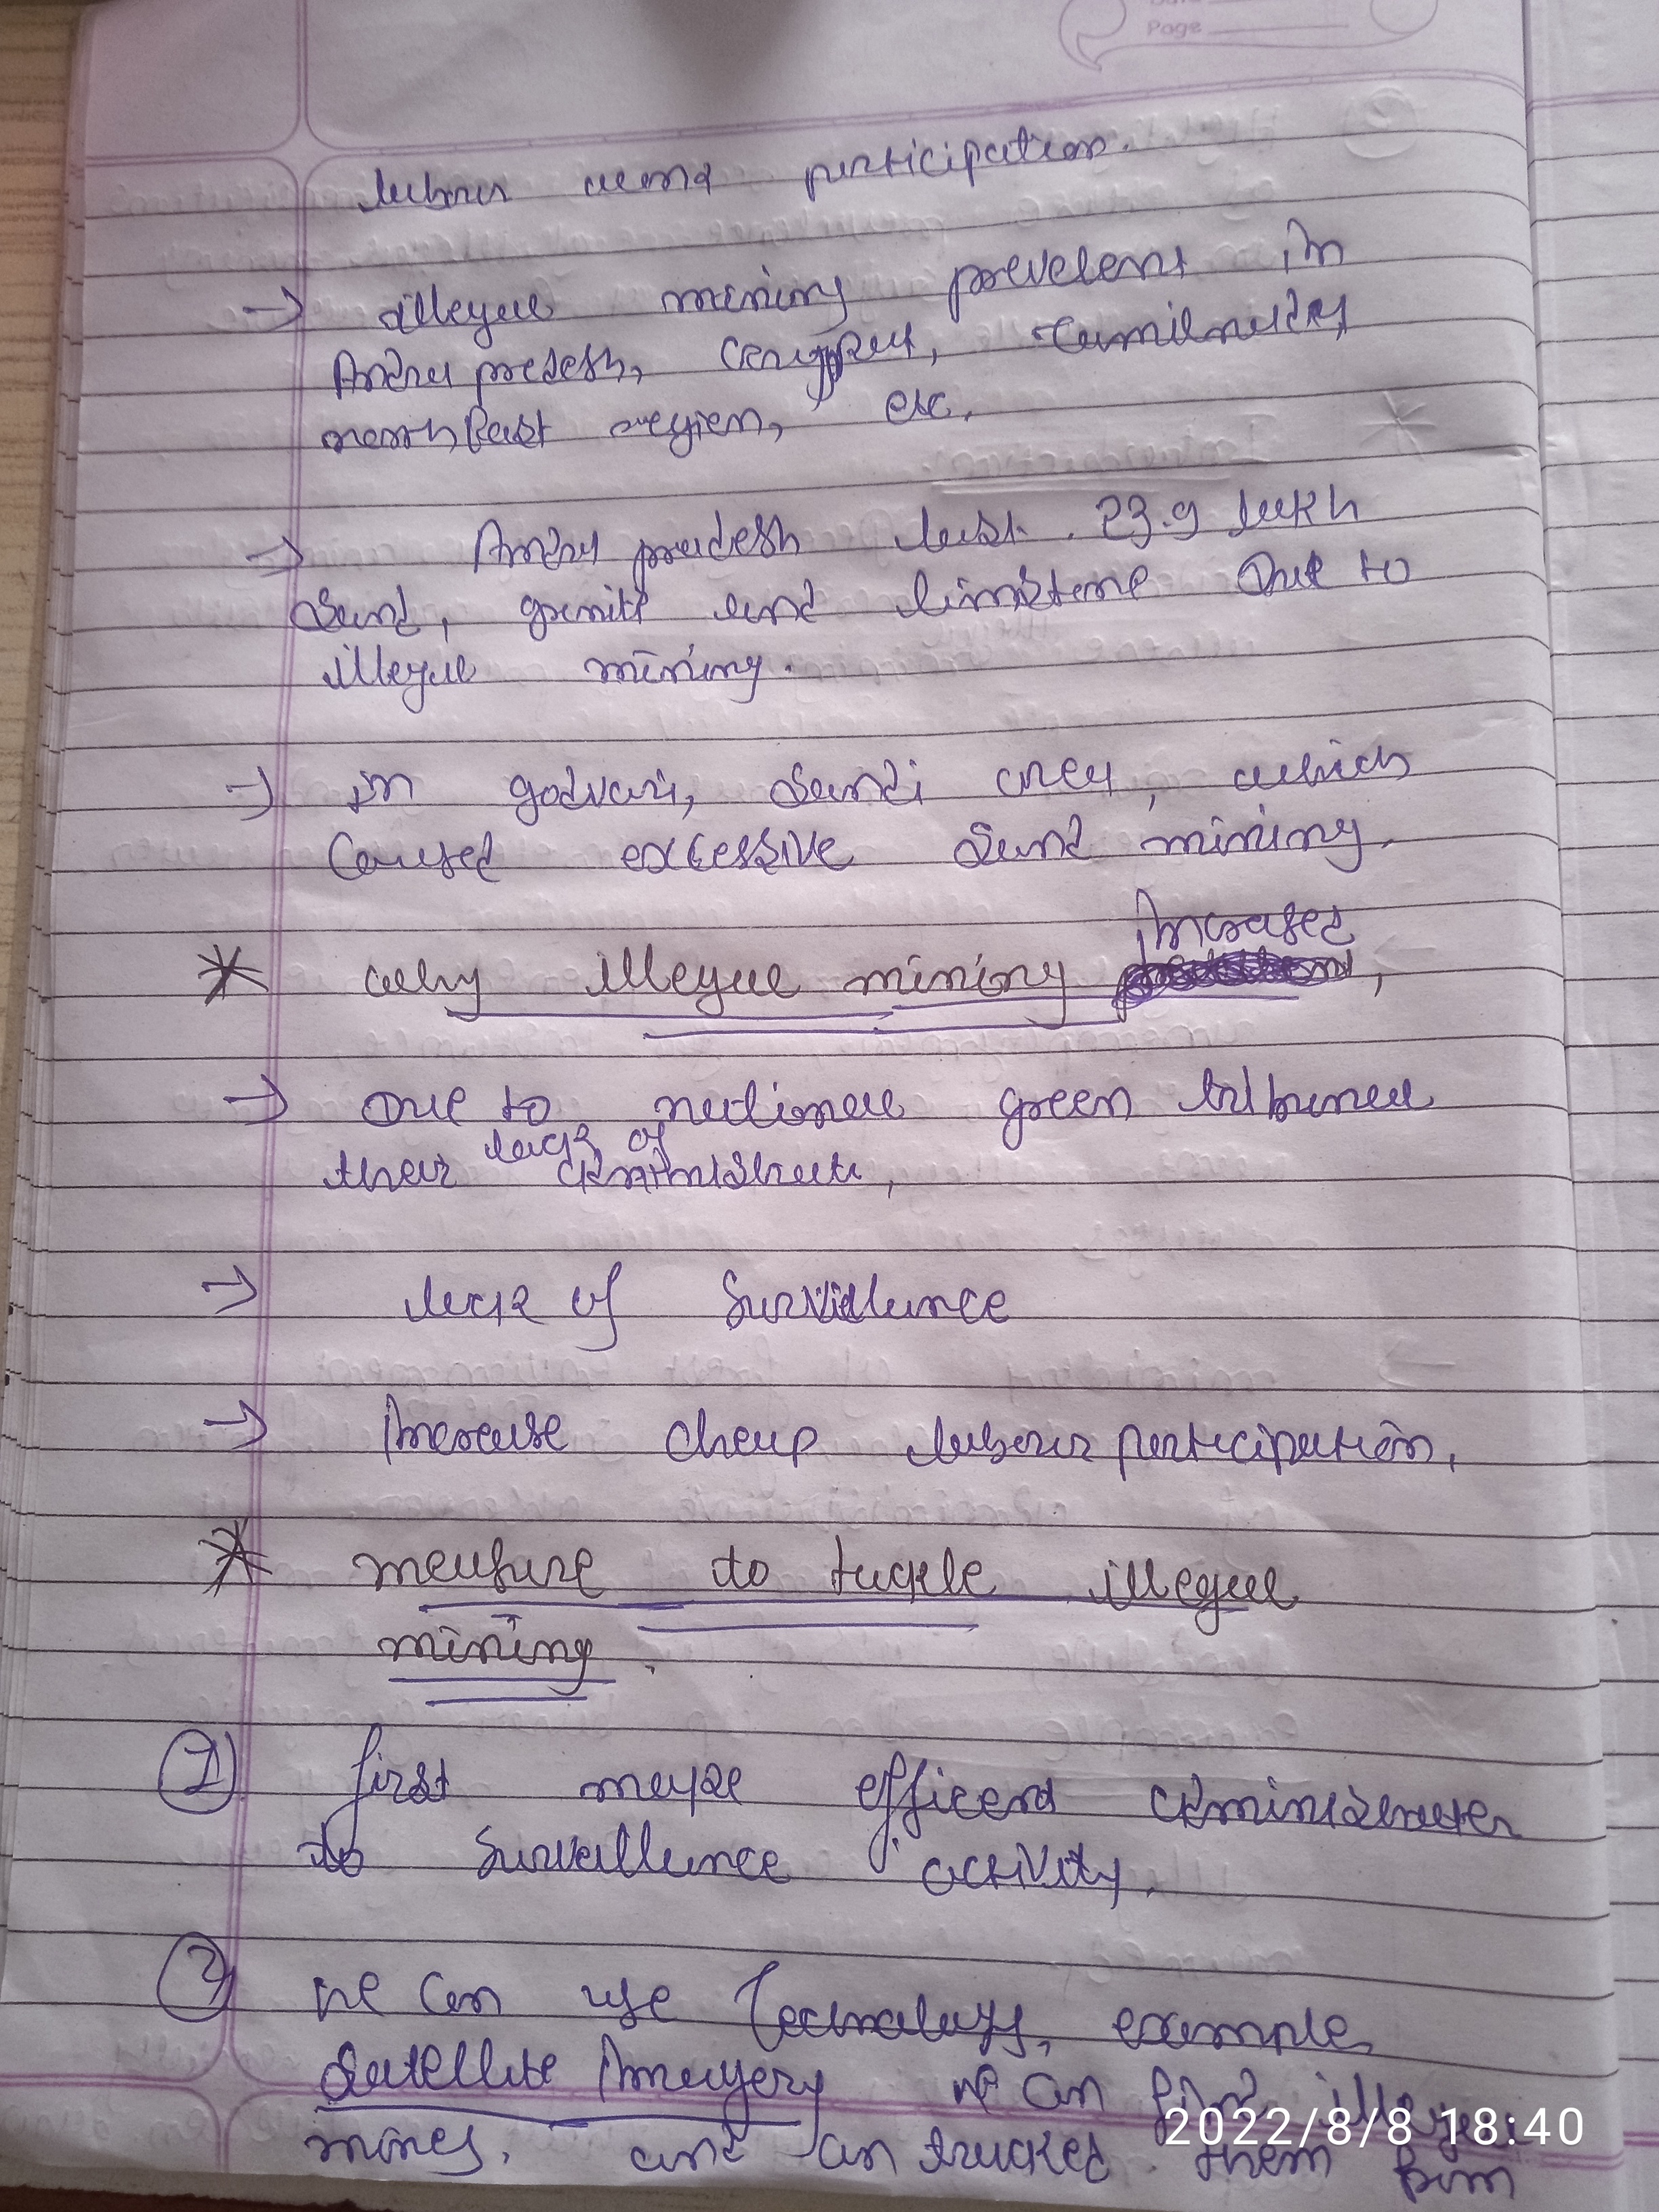 Page
labour participation.
→ illegal mining prevelent in
Andra pradesh, Tamilnadu,
north East region, etc.
→ Andra pradesh lost 23.9 lakh
Sand, granite and limstone Due to
illegal mining.
→ in godvari, Sand area, which
Caused excessive Sand mining.
increased
* why illegal mining ,
→ Due to national green tribunal
lack of
their adminstrati,
→ lack of Survillance
→ Increase cheap labour participation,
* measure to tackle illegal
mining.
1) first make efficent administrater
to Survaillance activity.
2) we can use Technology, example,
Satellite Imagery we can find illegal
mines, and can tracked them from
2022/8/8 18:40